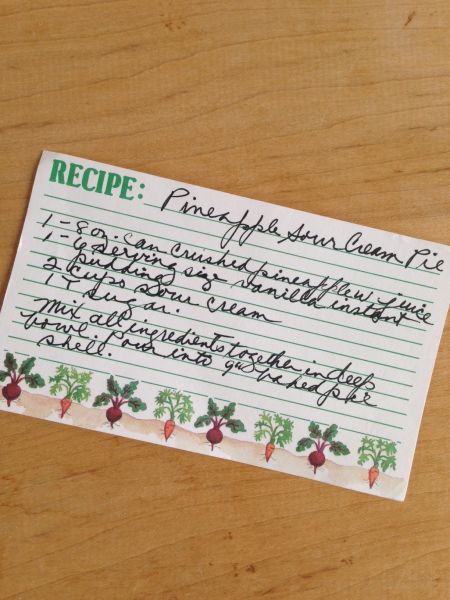 RECIPE: Pineapple Sour Cream Pie
1 - 8 oz. can crushed pineapple w/ juice
1 - 6 serving size vanilla instant
pudding
2 cups sour cream
1 T sugar.
Mix all ingredients together in deep
bowl. Pour into 9" baked pie
shell.